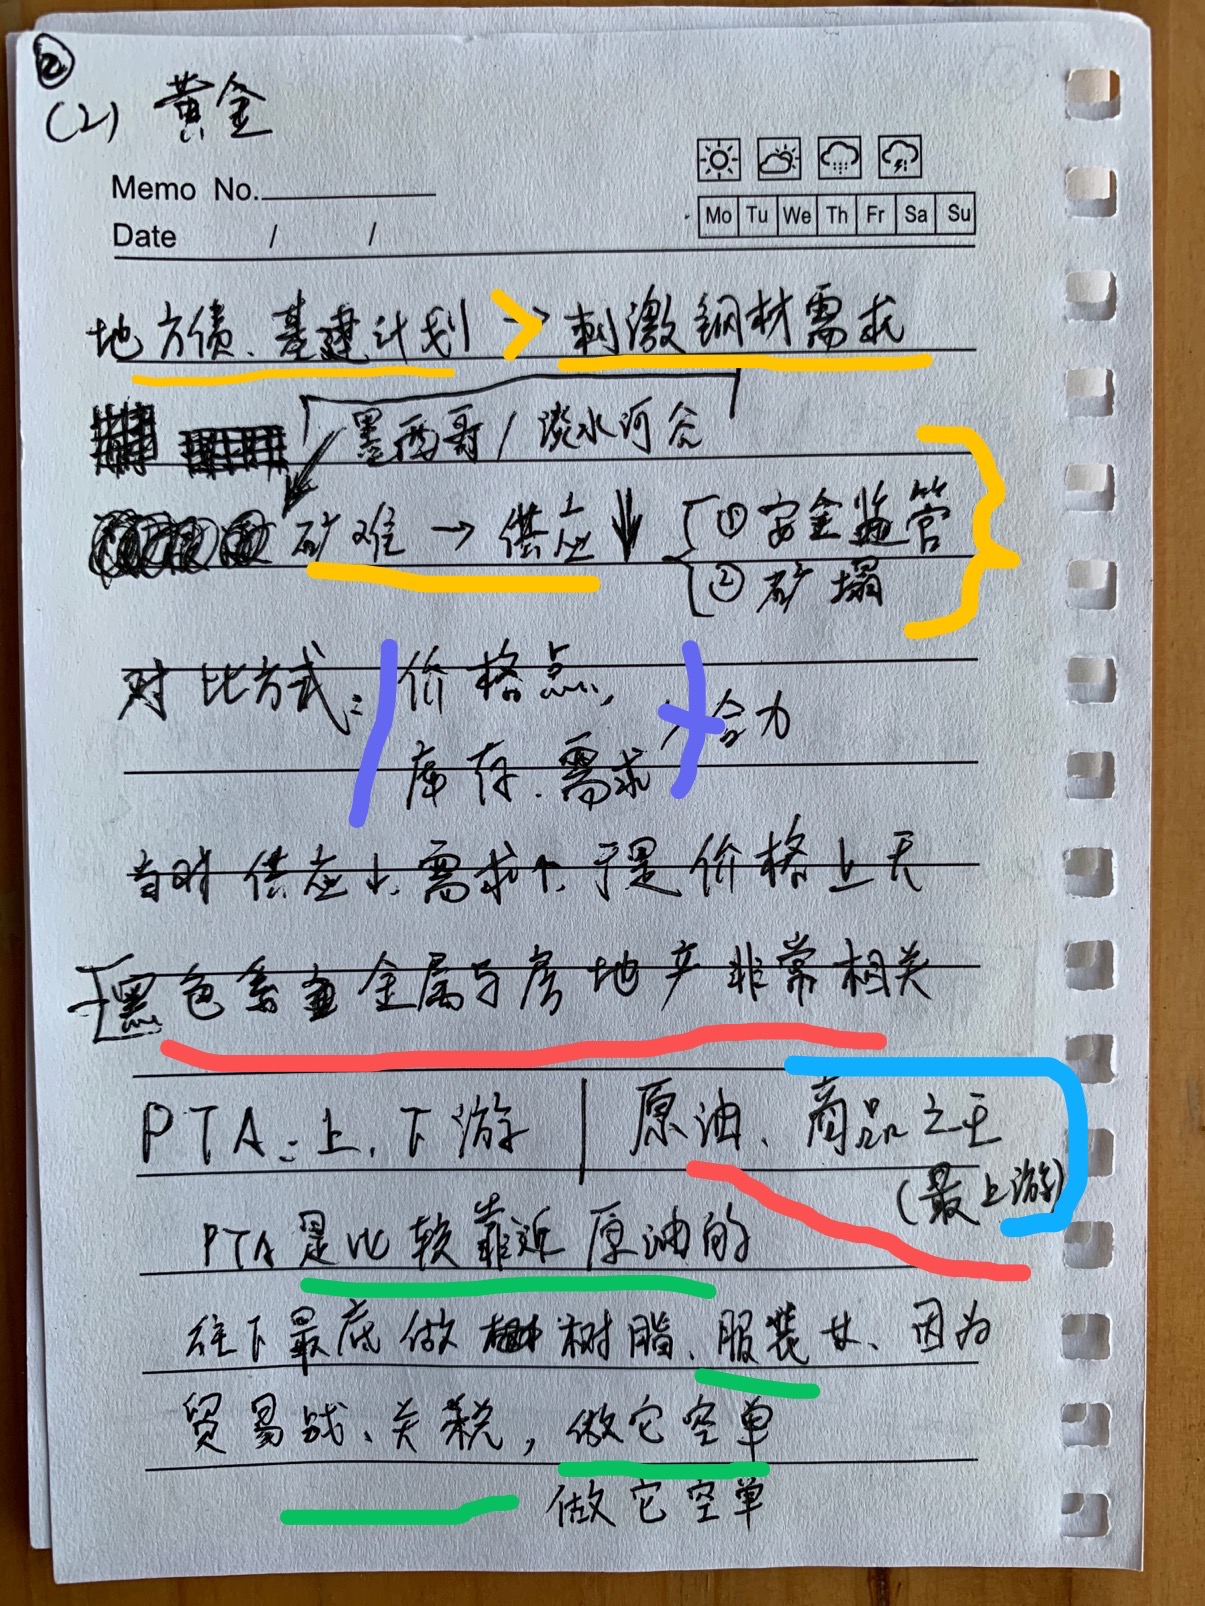 ②
(2) 黄金
Memo No.
Mo Tu We Th Fr Sa Su
Date / /
地方债、基建计划 → 刺激钢材需求
墨西哥/淡水河谷
矿难 → 供应↓ ①安全监管
②矿塌
对比方式: 价格点,
合力
库存、需求
当时供应↓、需求↑、于是价格上天
黑色系金属与房地产非常相关
PTA:上、下游 | 原油、商品之王
(最上游)
PTA是比较靠近原油的
往下最底做树脂、服装 、因为
贸易战、关税, 做它空单
做它空单